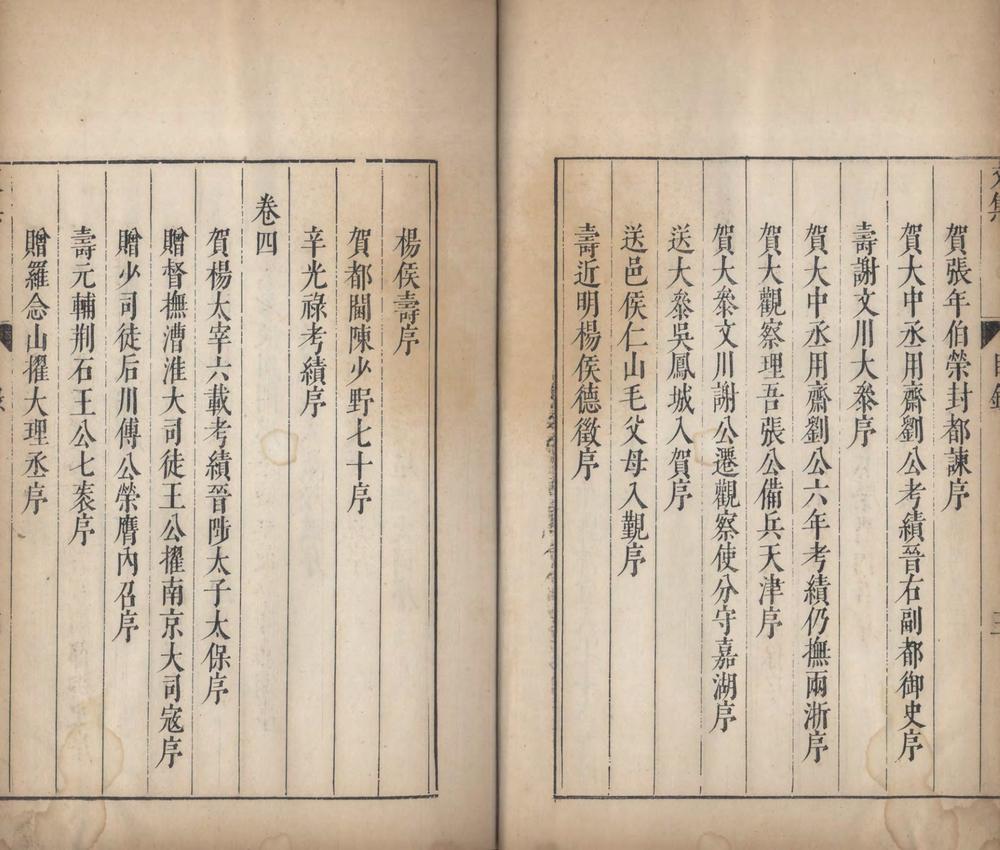 文集
目錄
賀張年伯榮封都諫序
賀大中丞用齋劉公考績晉右副都御史序
壽謝文川大叅序
賀大中丞用齋劉公六年考績仍撫兩浙序
賀大觀察理吾張公備兵天津序
賀大叅文川謝公遷觀察使分守嘉湖序
送大叅吳鳳城入賀序
送邑侯仁山毛父母入覲序
壽近明楊侯德徵序
楊侯壽序
賀都閫陳少野七十序
辛光祿考績序
卷四
賀楊太宰六載考績晉陟太子太保序
贈督撫漕淮大司徒王公擢南京大司寇序
贈少司徒后川傅公榮膺內召序
壽元輔荆石王公七袠序
贈羅念山擢大理丞序